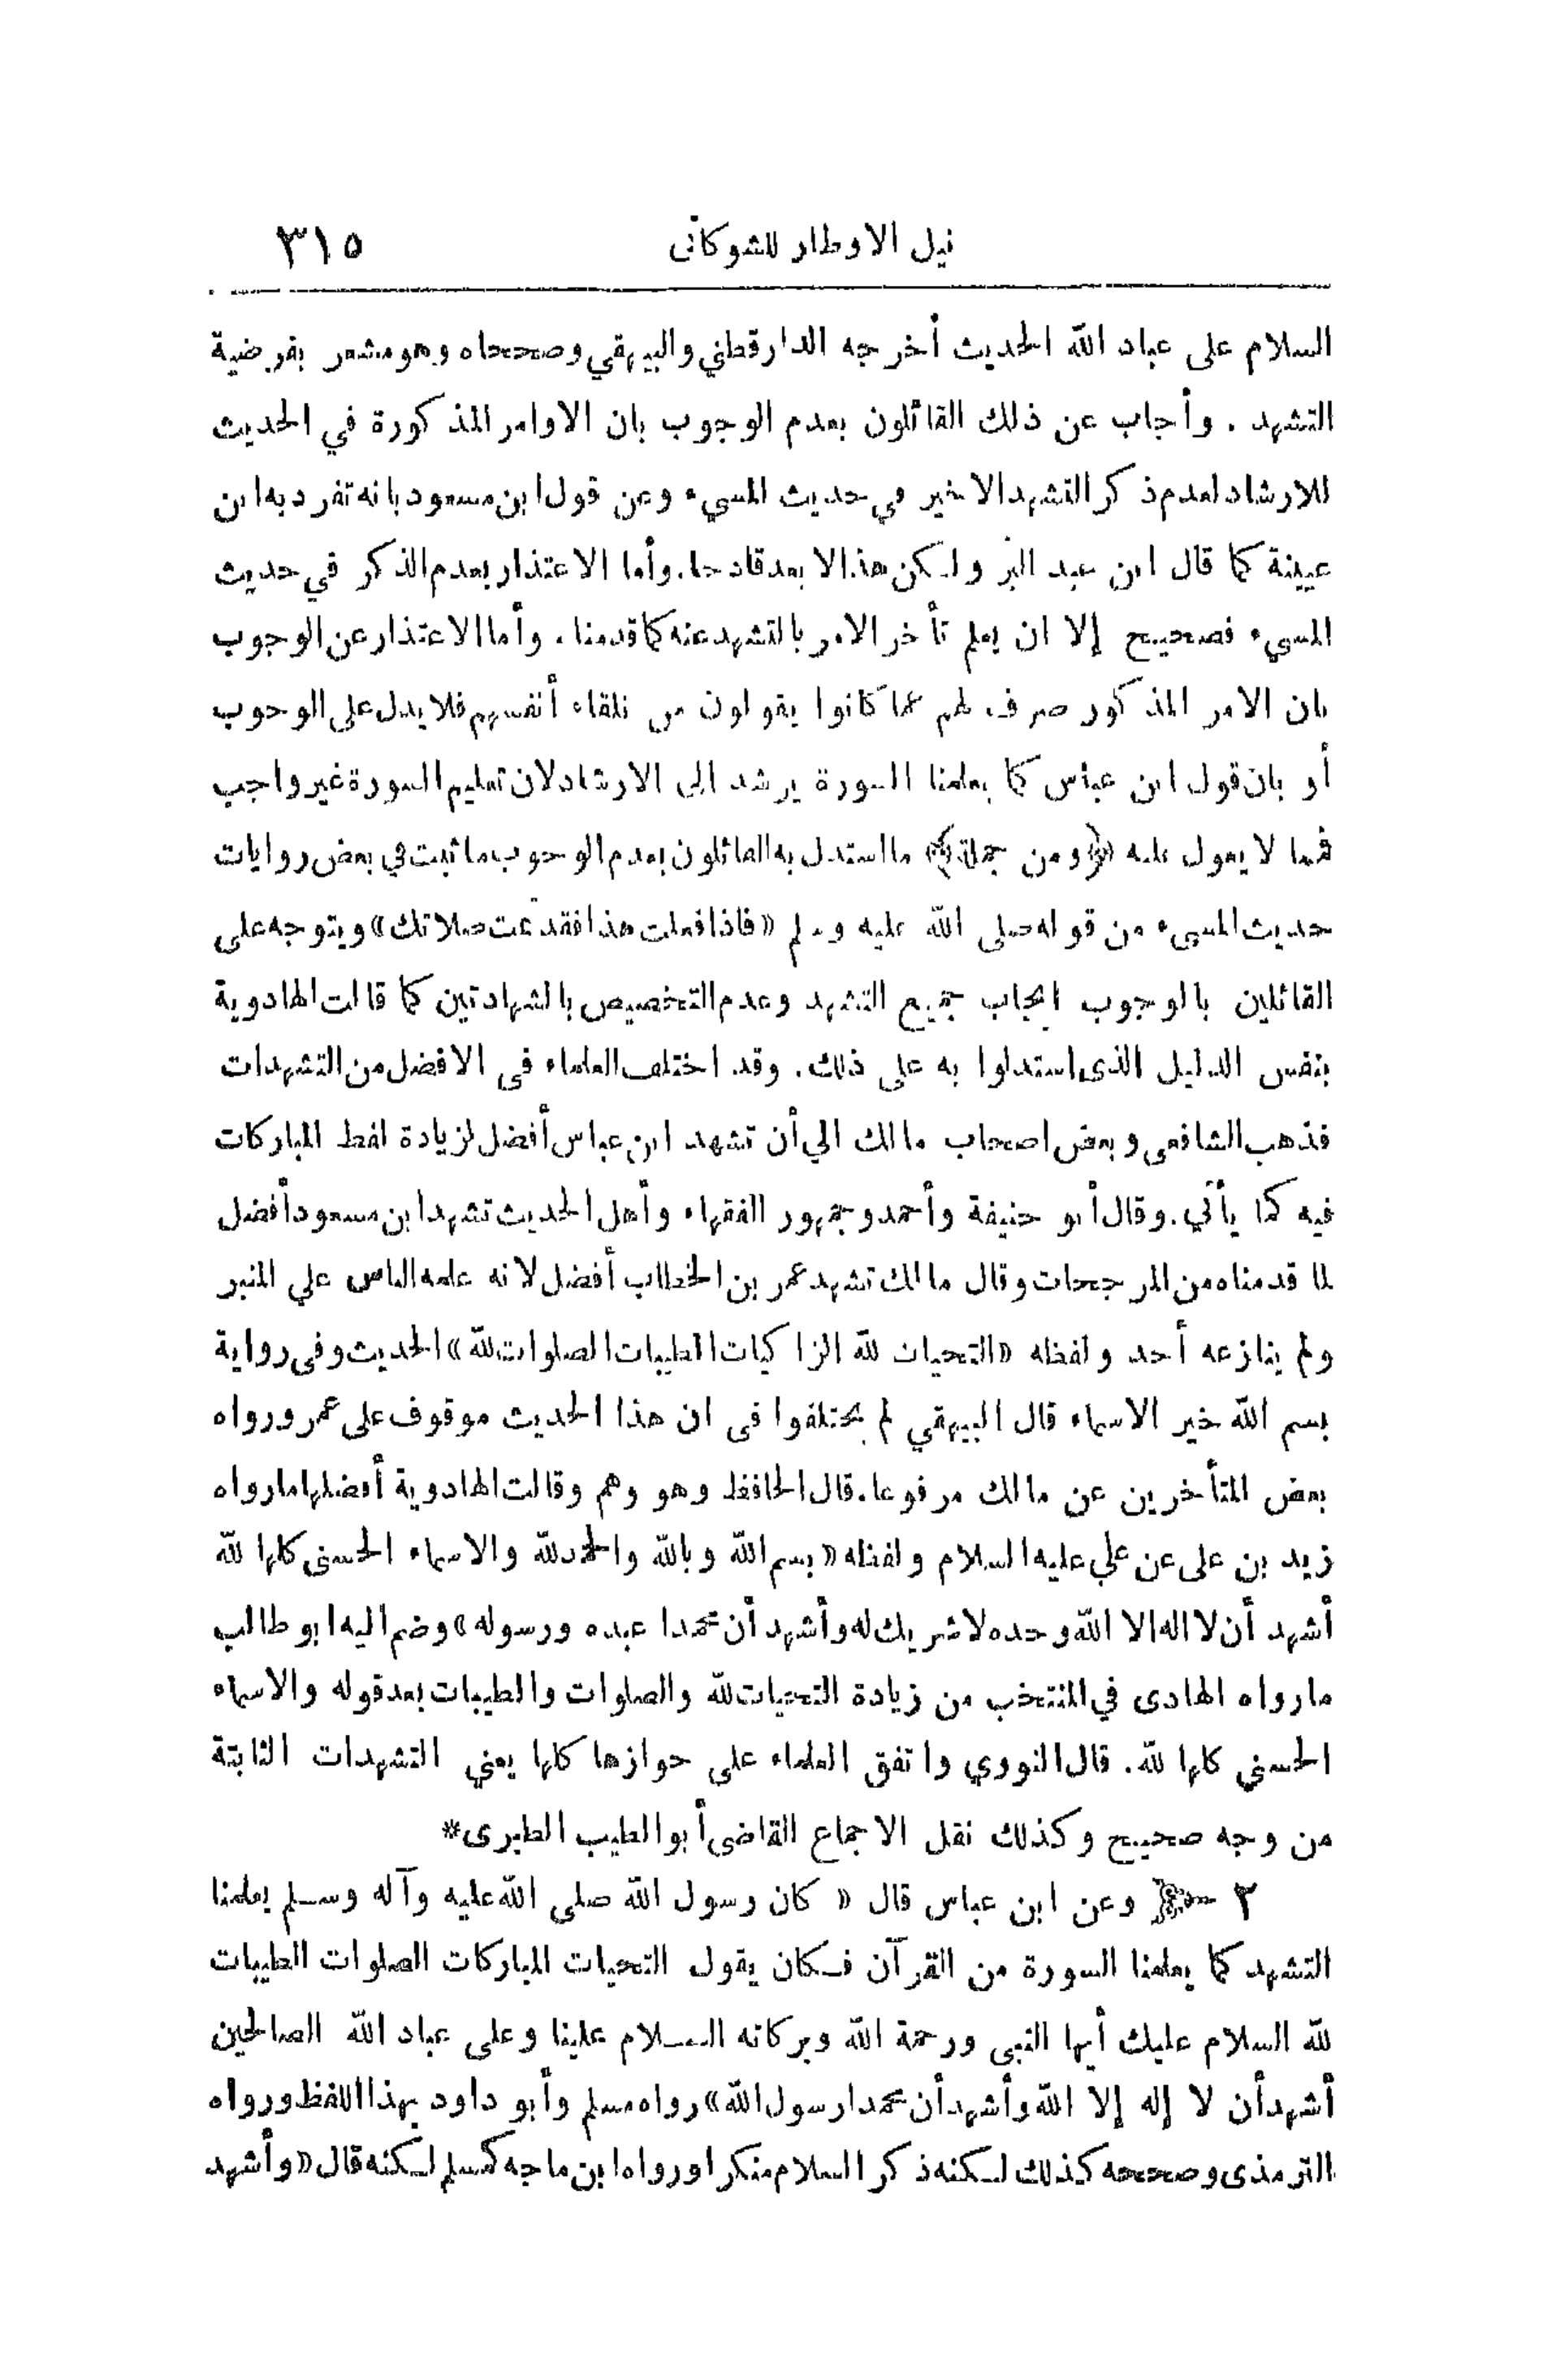 نيل الاوطار للشوكانى ٣١٥
السلام على عباد الله الحديث أخرجه الدارقطني والبيهقي وصححاه وهو مشعر بفرضية
التشهد . وأجاب عن ذلك القائلون بعدم الوجوب بان الاوامر المذكورة في الحديث
للارشاد لعدم ذكر التشهد الاخير في حديث المسيء وعن قول ابن مسعود بانه تفرد به ابن
عيينة كما قال ابن عبد البر ولكن هذا لا يعد قادحا. وأما الاعتذار بعدم الذكر في حديث
المسيء فصحيح إلا ان يعلم تأخر الامر بالتشهد عنه كما قدمنا. وأما الاعتذار عن الوجوب
بان الامر المذكور صرف لهم عما كانوا يقولون من تلقاء أنفسهم فلا يدل على الوجوب
أو بان قول ابن عباس كما يعلمنا السورة يرشد الى الارشاد لان تعليم السورة غير واجب
فمما لا يعول عليه ﴿ومن جملة﴾ ما استدل به القائلون بعدم الوجوب ما ثبت في بعض روايات
حديث المسىء من قوله صلى الله عليه وسلم «فاذا فعلت هذا فقد تمت صلاتك» ويتوجه على
القائلين بالوجوب ايجاب جميع التشهد وعدم التخصيص بالشهادتين كما قالت الهادوية
بنفس الدليل الذى استدلوا به على ذلك. وقد اختلف العلماء فى الافضل من التشهدات
فذهب الشافعى وبعض اصحاب مالك الي أن تشهد ابن عباس أفضل لزيادة لفظ المباركات
فيه كما يأتي. وقال أبو حنيفة وأحمد وجمهور الفقهاء وأهل الحديث تشهد ابن مسعود أفضل
لما قدمناه من المرجحات وقال مالك تشهد عمر بن الخطاب أفضل لانه علمه الناس علي المنبر
ولم ينازعه أحد ولفظه «التحيات لله الزاكيات الطيبات الصلوات لله» الحديث وفى رواية
بسم الله خير الاسماء قال البيهقي لم يختلفوا فى ان هذا الحديث موقوف على عمر ورواه
بعض المتأخرين عن مالك مرفوعا. قال الحافظ وهو وهم وقالت الهادوية أفضلها ما رواه
زيد بن على عن علي عليه السلام ولفظه «بسم الله وبالله والحمد لله والاسماء الحسنى كلها لله
أشهد أن لا اله الا الله وحده لا شريك له وأشهد أن محمدا عبده ورسوله» وضم اليه ابو طالب
ما رواه الهادى في المنتخب من زيادة التحيات لله والصلوات والطيبات بعد قوله والاسماء
الحسني كلها لله. قال النووي واتفق العلماء على جوازها كلها يعني التشهدات الثابتة
من وجه صحيح وكذلك نقل الاجماع القاضى أبو الطيب الطبرى*
٢ وعن ابن عباس قال « كان رسول الله صلى الله عليه وآله وسلم يعلمنا
التشهد كما يعلمنا السورة من القرآن فكان يقول التحيات المباركات الصلوات الطيبات
لله السلام عليك أيها النبى ورحمة الله وبركاته السلام علينا وعلى عباد الله الصالحين
أشهد أن لا إله إلا الله وأشهد أن محمدا رسول الله» رواه مسلم وأبو داود بهذا اللفظ ورواه
الترمذى وصححه كذلك لكنه ذكر السلام منكرا ورواه ابن ماجه كمسلم لكنه قال «وأشهد